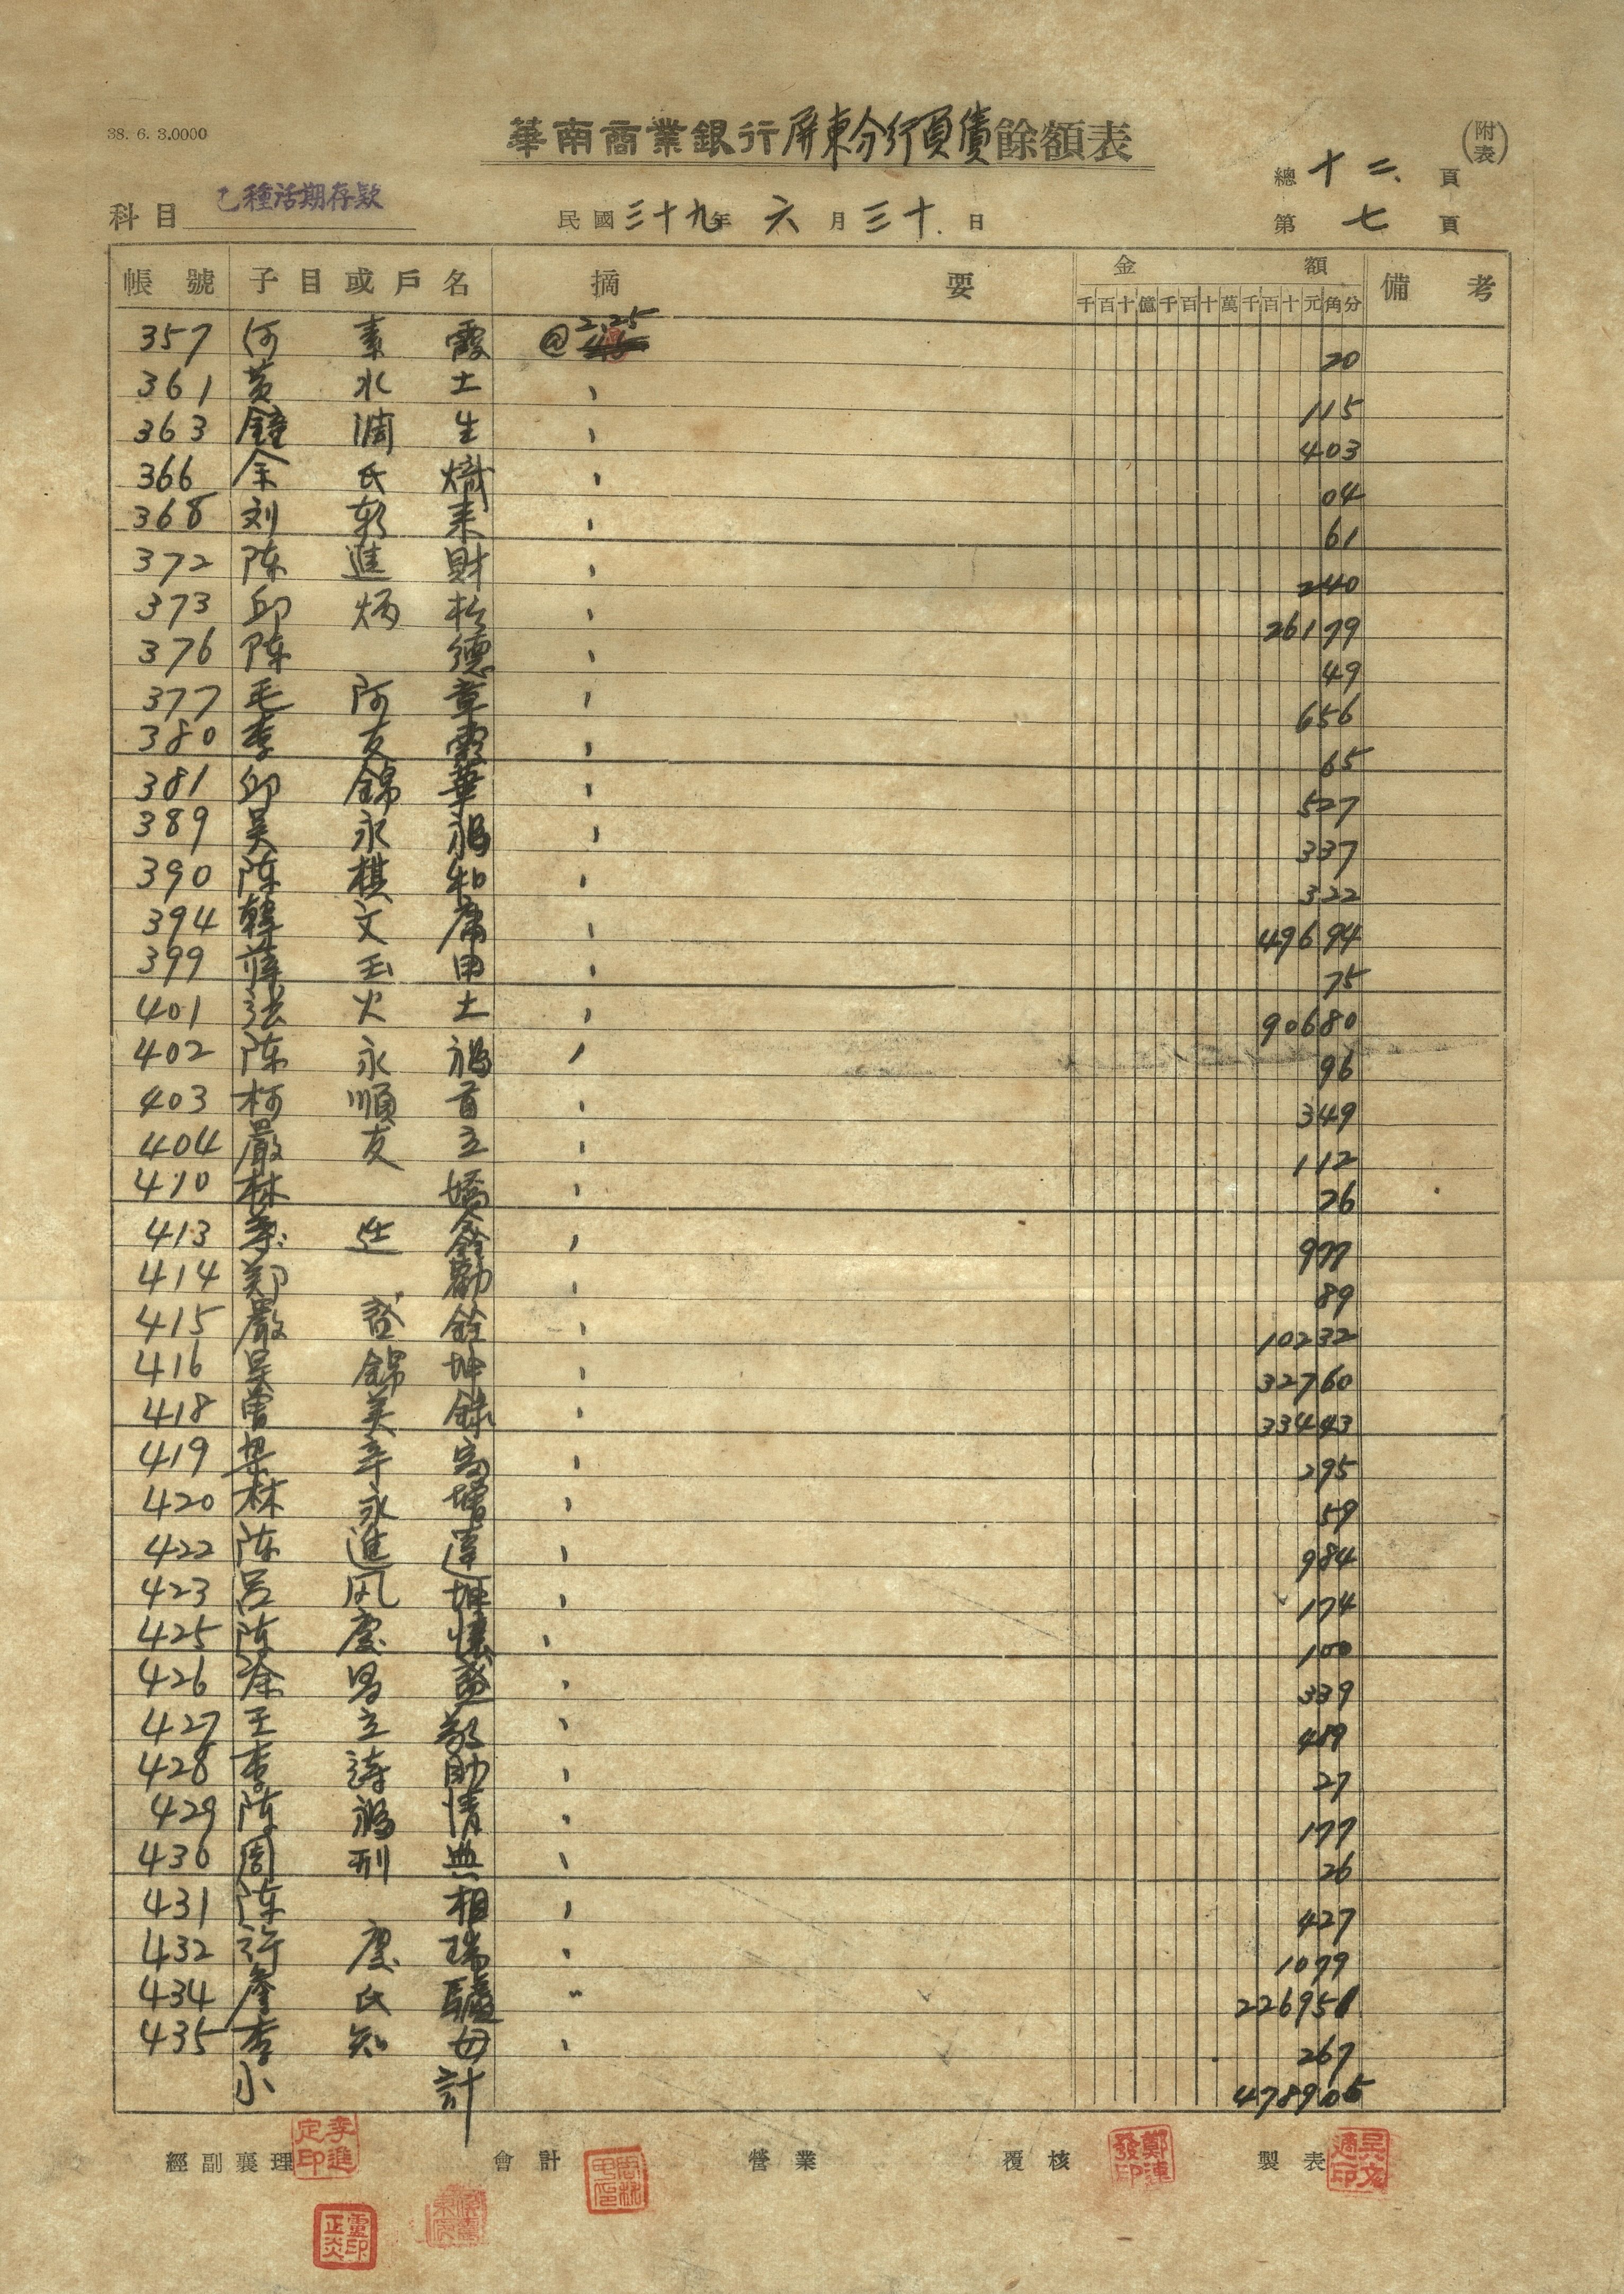 38. 6. 3.0000
華南商業銀行屏東分行負債餘額表
(附表)
總十二頁
科目 乙種活期存款
民國三十九年 六月三十日
第七頁
帳號 子目或戶名 摘要 金額 備考
千百十億千百十萬千百十元角分
357 何素霞 @2.25 20
361 黃水土 、 115
363 鐘潤生 、 403
366 余氏熾 、 04
368 刘新来 、 61
372 陈進財 、 240
373 邱炳松 、 26179
376 陈德 、 49
377 毛阿章 、 656
380 李友霖 、 65
381 邱錦華 、 527
389 吴永福 、 337
390 陈棋和 、 322
394 韓文庸 、 49694
399 薛玉申 、 75
401 张火土 、 90680
402 陈永福 、 96
403 柯順首 、 349
404 嚴友立 、 112
410 林嬌 、 26
413 連 、 977
414 鄭勸 、 89
415 嚴登銓 、 10232
416 吴錦坤 、 32760
418 曾英錄 、 33443
419 梁辛 、 295
420 林永增 、 59
422 陈進達 、 984
423 呂風坤 、 174
425 陈慶 、 100
426 涂昌盛 、 339
427 王立敬 、 489
428 李詩助 、 27
429 陈福情 、 177
430 周刑典 、 26
431 陈相 、 427
432 許慶瑞 、 1079
434 氏 〃 226951
435 李知母 、 267
小計 478905
經副襄理 會計 營業 覆核 製表
李進定印
鄭連發印
吴文適印